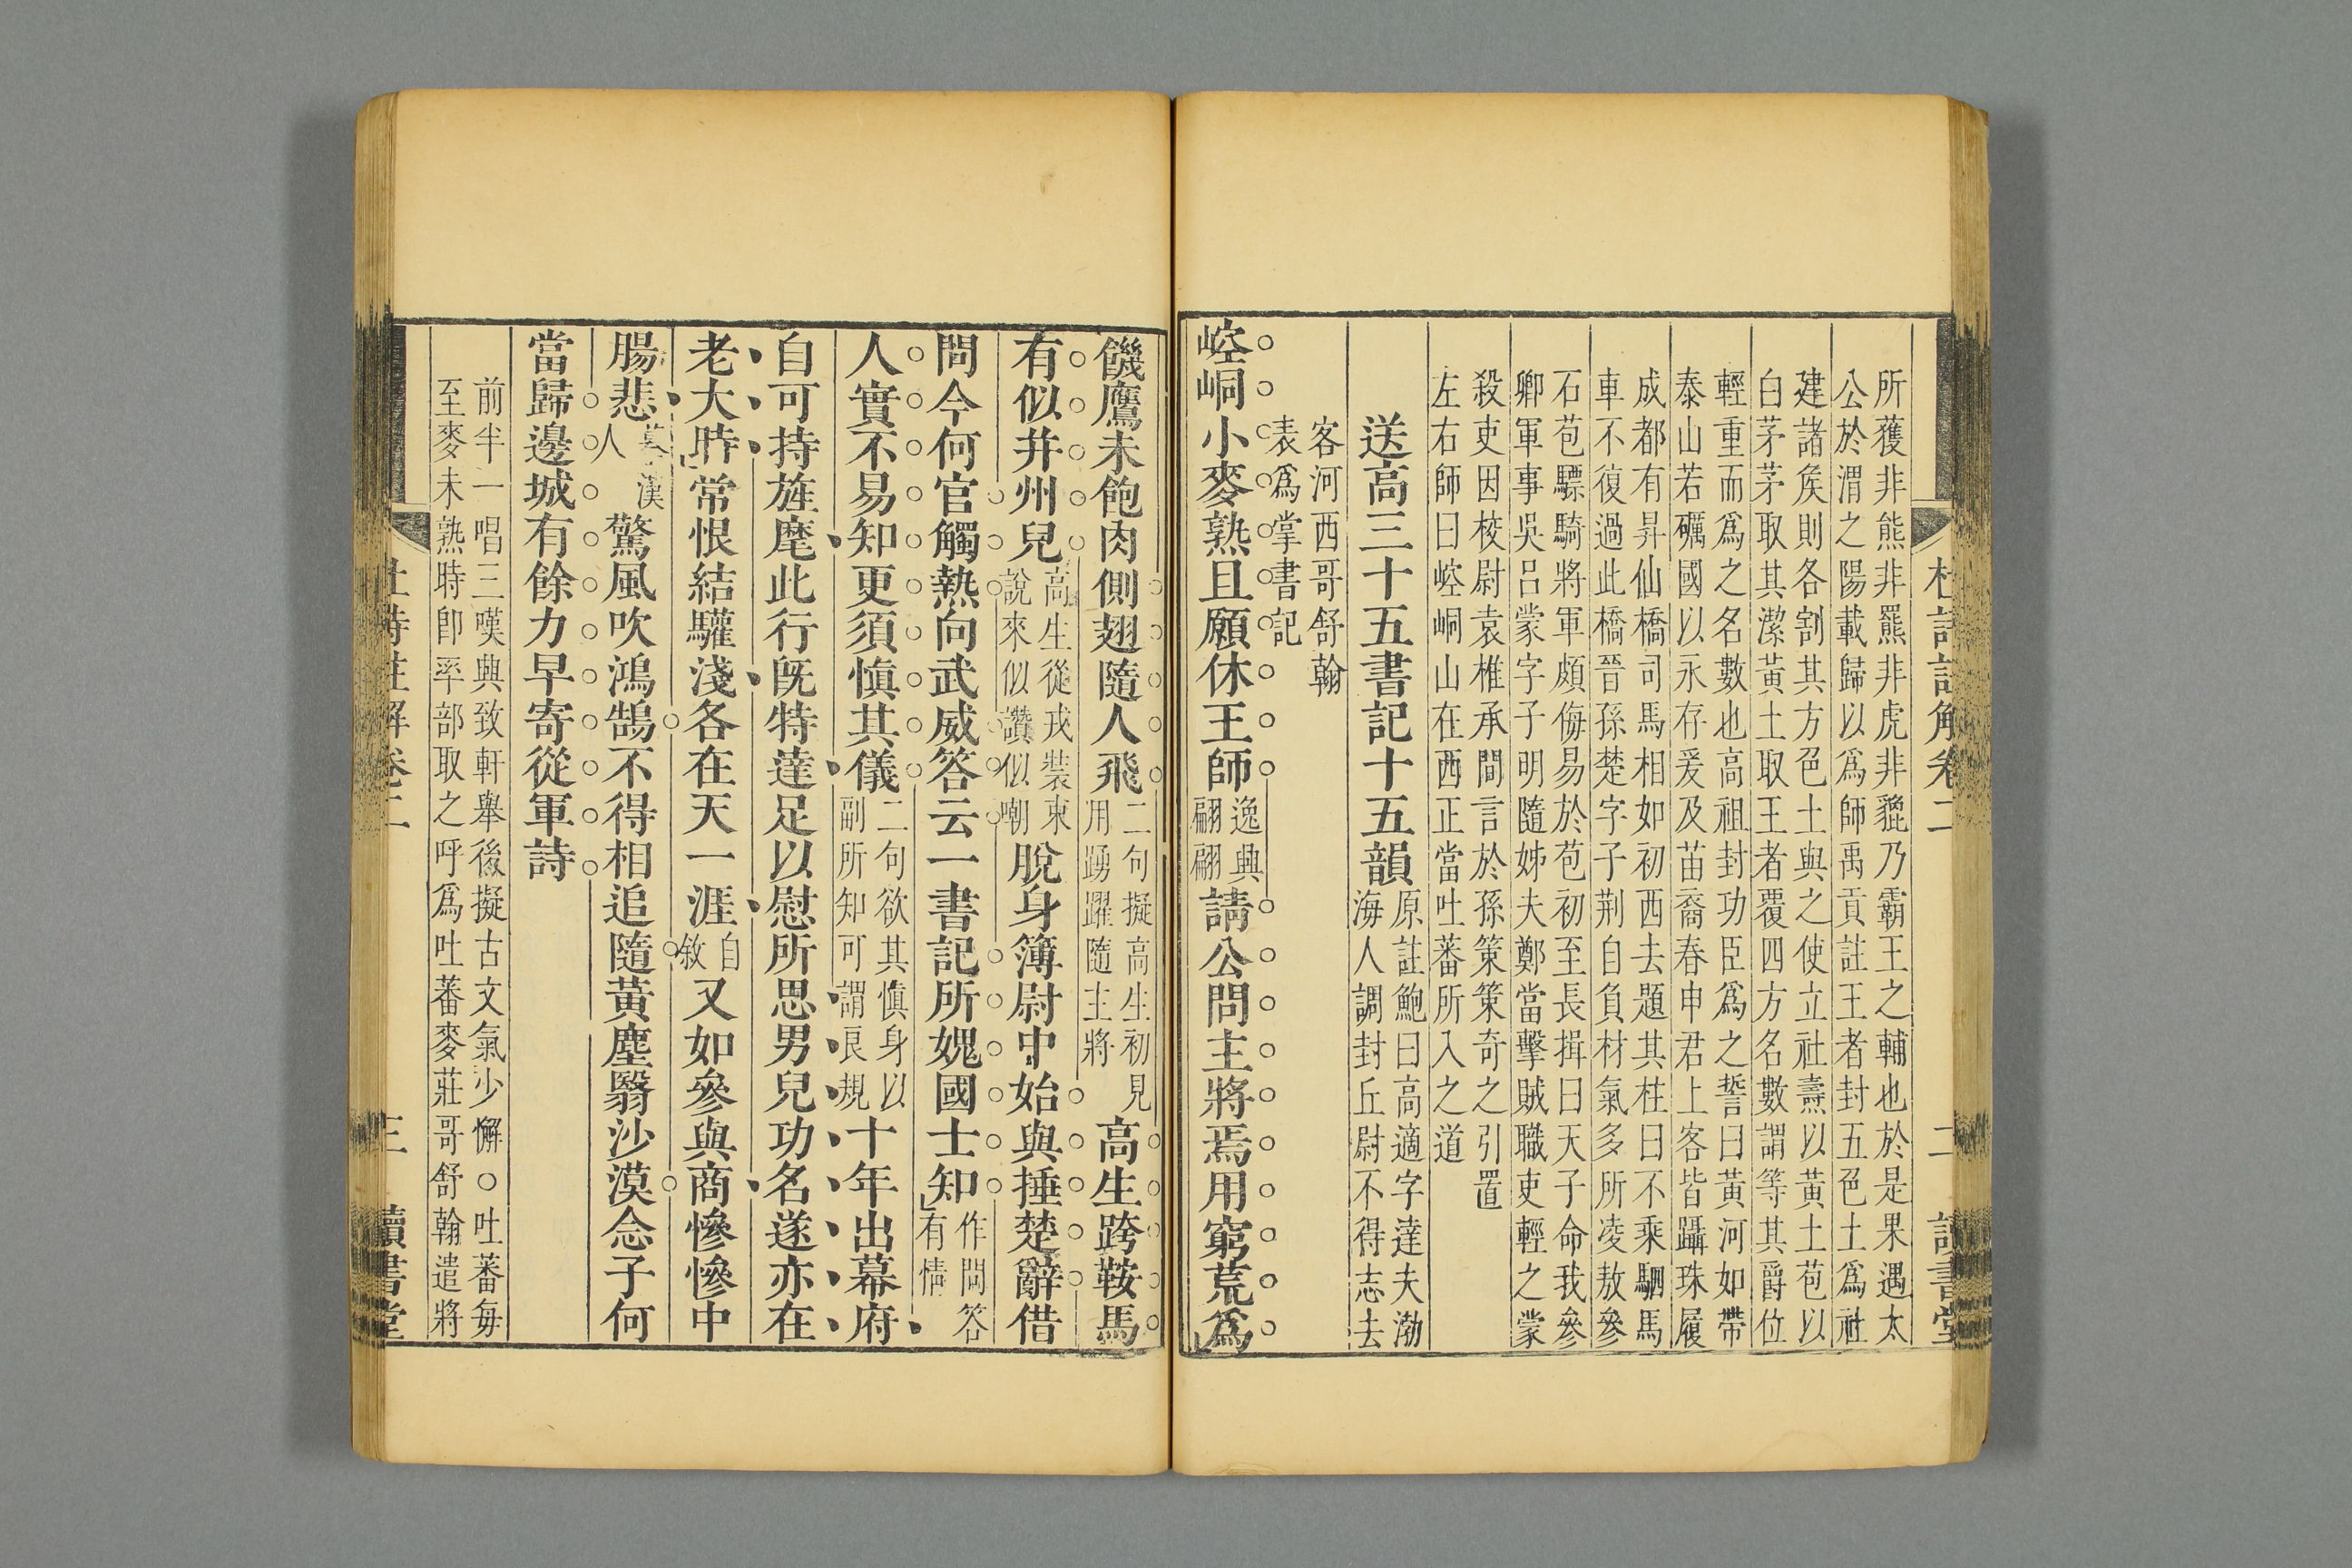 杜詩註解卷二 二 讀書堂
所獲非熊非羆非虎非貔乃霸王之輔也於是果遇太
公於渭之陽載歸以爲師禹貢註王者封五色土爲社
建諸矦則各割其方色土與之使立社燾以黃土苞以
白茅茅取其潔黃土取王者覆四方名數謂等其爵位
輕重而爲之名數也高祖封功臣爲之誓曰黃河如帶
泰山若礪國以永存爰及苗裔春申君上客皆躡珠履
成都有昇仙橋司馬相如初西去題其柱曰不乘駟馬
車不復過此橋晉孫楚字子荆自負材氣多所凌敖參
石苞驃騎將軍頗侮易於苞初至長揖曰天子命我參
卿軍事吳呂蒙字子明隨姊夫鄭當擊賊職吏輕之蒙
殺吏因校尉袁椎承間言於孫策策奇之引置
左右師曰崆峒山在西正當吐蕃所入之道
送高三十五書記十五韻
原註鮑曰高適字達夫渤
海人調封丘尉不得志去
客河西哥舒翰
表爲掌書記
崆峒小麥熟且願休王師
逸興
翩翩
請公問主將焉用窮荒爲
饑鷹未飽肉側翅隨人飛
二句擬高生初見
用踴躍隨主將
高生跨鞍馬
有似并州兒
高生從戎裝束
說來似讚似嘲
脫身簿尉中始與捶楚辭借
問今何官觸熱向武威答云一書記所媿國士知
作問答
有情
人實不易知更須愼其儀
二句欲其愼身以
副所知可謂良規
十年出幕府
自可持旌麾此行旣特達足以慰所思男兒功名遂亦在
老大時常恨結驩淺各在天一涯
自
敘
又如參與商慘慘中
腸悲
漢
人
驚風吹鴻鵠不得相追隨黃塵翳沙漠念子何
當歸邊城有餘力早寄從軍詩
前半一唱三嘆興致軒舉後擬古文氣少懈○吐蕃每
至麥未熟時卽率部取之呼爲吐蕃麥莊哥舒翰遣將
杜詩註解卷二 三 讀書堂